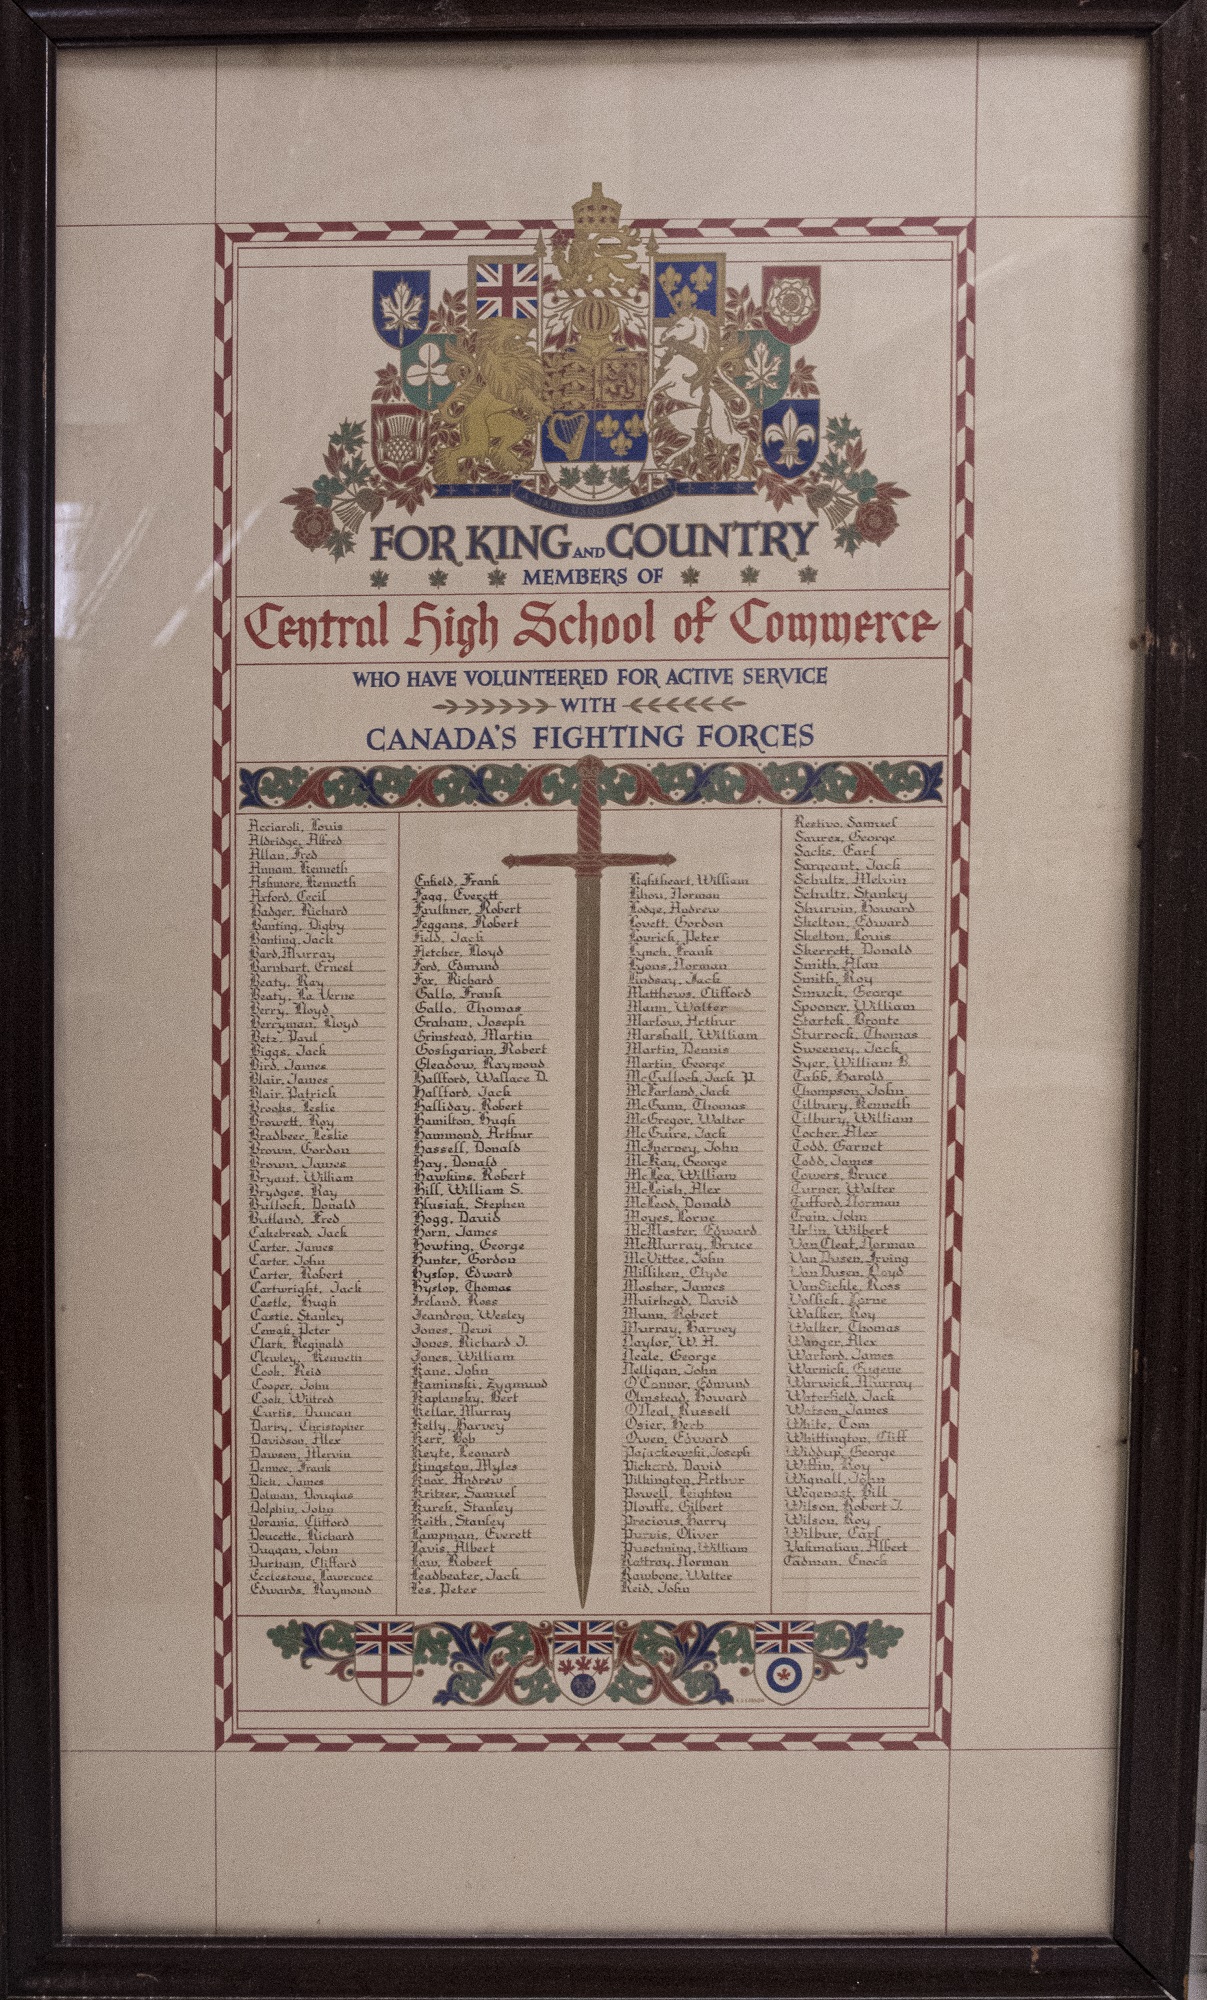 A MARI USQUE AD MARE
FOR KING AND COUNTRY
MEMBERS OF
Central High School of Commerce
WHO HAVE VOLUNTEERED FOR ACTIVE SERVICE
WITH
CANADA'S FIGHTING FORCES
Acciaroli, Louis
Aldridge, Alfred
Allan, Fred
Annam, Kenneth
Ashmore, Kenneth
Axford, Cecil
Badger, Richard
Banting, Digby
Banting, Jack
Bard, Murray
Barnhart, Ernest
Beaty, Ray
Beaty, La Verne
Berry, Lloyd
Berryman, Lloyd
Betz, Paul
Biggs, Jack
Bird, James
Blair, James
Blair, Patrick
Brooks, Leslie
Browett, Roy
Bradbeer, Leslie
Brown, Gordon
Brown, James
Bryant, William
Brydges, Ray
Bullock, Donald
Butland, Fred
Cakebread, Jack
Carter, James
Carter, John
Carter, Robert
Cartwright, Jack
Castle, Hugh
Castle, Stanley
Cemak, Peter
Clark, Reginald
Clewley, Kenneth
Cook, Reid
Cooper, John
Cook, Wilfred
Curtis, Duncan
Darby, Christopher
Davidson, Alex
Dawson, Mervin
Dennee, Frank
Dick, James
Dolman, Douglas
Dolphin, John
Dorania, Clifford
Doucette, Richard
Duggan, John
Durham, Clifford
Ecclestone, Lawrence
Edwards, Raymond
Enfield, Frank
Fagg, Everett
Faulkner, Robert
Feggans, Robert
Field, Jack
Fletcher, Lloyd
Ford, Edmund
Fox, Richard
Gallo, Frank
Gallo, Thomas
Graham, Joseph
Grinstead, Martin
Goshgarian, Robert
Gleadow, Raymond
Hallford, Wallace D.
Hallford, Jack
Halliday, Robert
Hamilton, Hugh
Hammond, Arthur
Hassell, Donald
Hay, Donald
Hawkins, Robert
Hill, William S.
Hlusiak, Stephen
Hogg, David
Horn, James
Howting, George
Hunter, Gordon
Hyslop, Edward
Hyslop, Thomas
Ireland, Ross
Jeandron, Wesley
Jones, Dewi
Jones, Richard J.
Jones, William
Kane, John
Kaminski, Zygmund
Kaplansky, Bert
Kellar, Murray
Kelly, Harvey
Kerr, Bob
Keyte, Leonard
Kingston, Myles
Knox, Andrew
Kritzer, Samuel
Kurek, Stanley
Keith, Stanley
Lampman, Everett
Lavis, Albert
Law, Robert
Leadbeater, Jack
Les, Peter
Lightheart, William
Lihou, Norman
Lodge, Andrew
Lovett, Gordon
Lovrick, Peter
Lynch, Frank
Lyons, Norman
Lindsay, Jack
Matthews, Clifford
Mann, Walter
Marlow, Arthur
Marshall, William
Martin, Dennis
Martin, George
McCulloch, Jack P.
McFarland, Jack
McGann, Thomas
McGregor, Walter
McGuire, Jack
McInerney, John
McKay, George
McLea, William
McLeish, Alex
McLeod, Donald
Moyes, Lorne
McMaster, Edward
McMurray, Bruce
McVittee, John
Milliken, Clyde
Mosher, James
Muirhead, David
Munn, Robert
Murray, Harvey
Naylor, W. H.
Neale, George
Nelligan, John
O'Connor, Edmund
Olmstead, Howard
O'Neal, Russell
Osier, Herb
Owen, Edward
Pajackowski, Joseph
Pickard, David
Pilkington, Arthur
Powell, Leighton
Plouffe, Gilbert
Precious, Harry
Purvis, Oliver
Puschning, William
Rattray, Norman
Rawbone, Walter
Reid, John
Restivo, Samuel
Saurez, George
Sacks, Earl
Sargeant, Jack
Schultz, Melvin
Schultz, Stanley
Shurvin, Howard
Skelton, Edward
Skelton, Louis
Skerrett, Donald
Smith, Alan
Smith, Roy
Smuck, George
Spooner, William
Startek, Bronte
Sturrock, Thomas
Sweeney, Jack
Syer, William B.
Tabb, Harold
Thompson, John
Tilbury, Kenneth
Tilbury, William
Tocher, Alex
Todd, Garnet
Todd, James
Towers, Bruce
Turner, Walter
Tufford, Norman
Train, John
Urlin, Wilbert
Van Cleaf, Norman
Van Dusen, Irving
Van Dusen, Lloyd
VanSickle, Ross
Vollick, Lorne
Walker, Roy
Walker, Thomas
Wanger, Alex
Warford, James
Warnick, Eugene
Warwick, Murray
Waterfield, Jack
Watson, James
White, Tom
Whittington, Cliff
Widdup, George
Wiffin, Roy
Wignall, John
Wegenast, Bill
Wilson, Robert J.
Wilson, Roy
Wilbur, Carl
Yakmalian, Albert
Cadman, Enoch